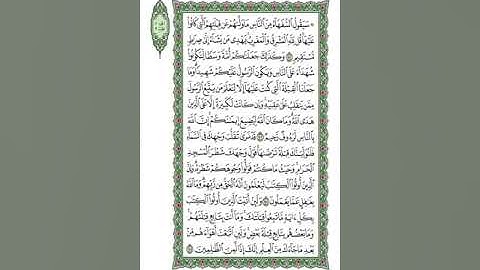 ۞ سَيَقُولُ ٱلسُّفَهَآءُ مِنَ ٱلنَّاسِ مَا وَلَّىٰهُمْ عَن قِبْلَتِهِمُ ٱلَّتِى كَانُوا۟
عَلَيْهَا قُل لِّلَّهِ ٱلْمَشْرِقُ وَٱلْمَغْرِبُ يَهْدِى مَن يَشَآءُ إِلَىٰ صِرَٰطٍ
مُّسْتَقِيمٍ ١٤٢ وَكَذَٰلِكَ جَعَلْنَٰكُمْ أُمَّةً وَسَطًا لِّتَكُونُوا۟
شُهَدَآءَ عَلَى ٱلنَّاسِ وَيَكُونَ ٱلرَّسُولُ عَلَيْكُمْ شَهِيدًا وَمَا
جَعَلْنَا ٱلْقِبْلَةَ ٱلَّتِى كُنتَ عَلَيْهَآ إِلَّا لِنَعْلَمَ مَن يَتَّبِعُ ٱلرَّسُولَ
مِمَّن يَنقَلِبُ عَلَىٰ عَقِبَيْهِ وَإِن كَانَتْ لَكَبِيرَةً إِلَّا عَلَى ٱلَّذِينَ
هَدَى ٱللَّهُ وَمَا كَانَ ٱللَّهُ لِيُضِيعَ إِيمَٰنَكُمْ إِنَّ ٱللَّهَ
بِٱلنَّاسِ لَرَءُوفٌ رَّحِيمٌ ١٤٣ قَدْ نَرَىٰ تَقَلُّبَ وَجْهِكَ فِى ٱلسَّمَآءِ
فَلَنُوَلِّيَنَّكَ قِبْلَةً تَرْضَىٰهَا فَوَلِّ وَجْهَكَ شَطْرَ ٱلْمَسْجِدِ
ٱلْحَرَامِ وَحَيْثُ مَا كُنتُمْ فَوَلُّوا۟ وُجُوهَكُمْ شَطْرَهُۥ وَإِنَّ
ٱلَّذِينَ أُوتُوا۟ ٱلْكِتَٰبَ لَيَعْلَمُونَ أَنَّهُ ٱلْحَقُّ مِن رَّبِّهِمْ وَمَا ٱللَّهُ
بِغَٰفِلٍ عَمَّا يَعْمَلُونَ ١٤٤ وَلَئِنْ أَتَيْتَ ٱلَّذِينَ أُوتُوا۟ ٱلْكِتَٰبَ
بِكُلِّ ءَايَةٍ مَّا تَبِعُوا۟ قِبْلَتَكَ وَمَآ أَنتَ بِتَابِعٍ قِبْلَتَهُمْ
وَمَا بَعْضُهُم بِتَابِعٍ قِبْلَةَ بَعْضٍ وَلَئِنِ ٱتَّبَعْتَ أَهْوَآءَهُم مِّنۢ
بَعْدِ مَا جَآءَكَ مِنَ ٱلْعِلْمِ إِنَّكَ إِذًا لَّمِنَ ٱلظَّٰلِمِينَ ١٤٥